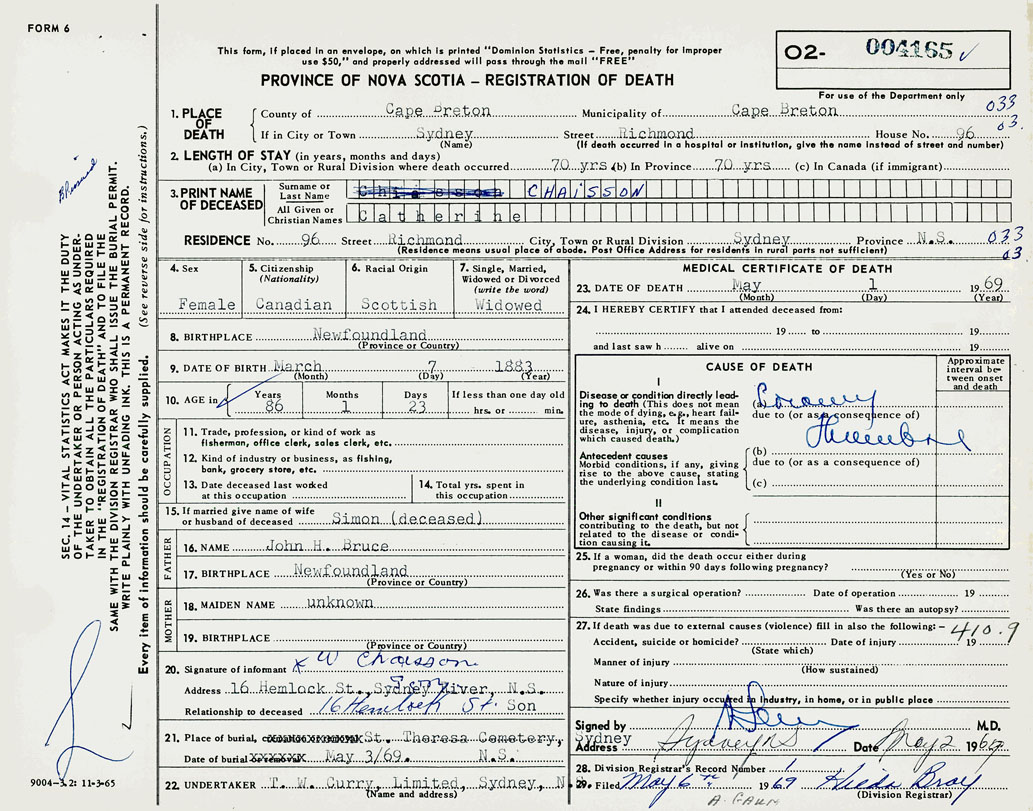 FORM 6
This form, if placed in an envelope, on which is printed "Dominion Statistics – Free, penalty for improper
use $50," and properly addressed will pass through the mail "FREE"
PROVINCE OF NOVA SCOTIA – REGISTRATION OF DEATH
O2- 004165
For use of the Department only
033
03.
1. PLACE OF DEATH
County of Cape Breton Municipality of Cape Breton
If in City or Town Sydney Street Richmond House No. 96
(Name) (If death occurred in a hospital or institution, give the name instead of street and number)
2. LENGTH OF STAY (in years, months and days)
(a) In City, Town or Rural Division where death occurred 70 yrs (b) In Province 70 yrs (c) In Canada (if immigrant)
3. PRINT NAME OF DECEASED
Surname or Last Name Chiasson CHAISSON
All Given or Christian Names Catherine
RESIDENCE No. 96 Street Richmond City, Town or Rural Division Sydney Province N.S. 033
(Residence means usual place of abode. Post Office Address for residents in rural parts not sufficient) 03
4. Sex
Female
5. Citizenship
(Nationality)
Canadian
6. Racial Origin
Scottish
7. Single, Married,
Widowed or Divorced
(write the word)
Widowed
8. BIRTHPLACE Newfoundland
(Province or Country)
9. DATE OF BIRTH March 7 1883
(Month) (Day) (Year)
10. AGE in
Years Months Days If less than one day old
86 1 23 hrs. or min.
OCCUPATION
11. Trade, profession, or kind of work as
fisherman, office clerk, sales clerk, etc.
12. Kind of industry or business, as fishing,
bank, grocery store, etc.
13. Date deceased last worked
at this occupation
14. Total yrs. spent in
this occupation
15. If married give name of wife
or husband of deceased Simon (deceased)
FATHER
16. NAME John H. Bruce
17. BIRTHPLACE Newfoundland
(Province or Country)
MOTHER
18. MAIDEN NAME unknown
19. BIRTHPLACE
(Province or Country)
20. Signature of informant x W Chaisson
Address 16 Hemlock St., Sydney River, N.S.
Son
Relationship to deceased 16 Hemlock St. Son
21. Place of burial, St. Theresa Cemetery, Sydney
Date of burial May 3/69. N.S.
22. UNDERTAKER T. W. Curry, Limited, Sydney, N.S.
(Name and address)
MEDICAL CERTIFICATE OF DEATH
23. DATE OF DEATH May 1 1969
(Month) (Day) (Year)
24. I HEREBY CERTIFY that I attended deceased from:
19 to 19
and last saw h alive on 19
CAUSE OF DEATH
Approximate
interval between onset
and death
I
Disease or condition directly leading to death (This does not mean
the mode of dying, e.g., heart failure, asthenia, etc. It means the
disease, injury, or complication
which caused death.)
(a) Coronary
due to (or as a consequence of)
Antecedent causes
Morbid conditions, if any, giving
rise to the above cause, stating
the underlying condition last.
(b)
due to (or as a consequence of)
(c)
II
Other significant conditions
contributing to the death, but not
related to the disease or condition causing it.
25. If a woman, did the death occur either during
pregnancy or within 90 days following pregnancy?
(Yes or No)
26. Was there a surgical operation? Date of operation 19
State findings Was there an autopsy?
27. If death was due to external causes (violence) fill in also the following: – 410.9
Accident, suicide or homicide? Date of injury 19
(State which)
Manner of injury
(How sustained)
Nature of injury
Specify whether injury occurred in industry, in home, or in public place
Signed by M.D.
Address Sydney NS Date May 2 1969
28. Division Registrar's Record Number
29. Filed May 6th 1969 Hilda Bray
(Division Registrar)
SEC. 14 – VITAL STATISTICS ACT MAKES IT THE DUTY
OF THE UNDERTAKER OR PERSON ACTING AS UNDERTAKER TO OBTAIN ALL THE PARTICULARS REQUIRED
IN THE "REGISTRATION OF DEATH" AND TO FILE THE
SAME WITH THE DIVISION REGISTRAR WHO SHALL ISSUE THE BURIAL PERMIT.
WRITE PLAINLY WITH UNFADING INK. THIS IS A PERMANENT RECORD.
Every item of information should be carefully supplied. (See reverse side for instructions.)
9004-3.2: 11-3-65